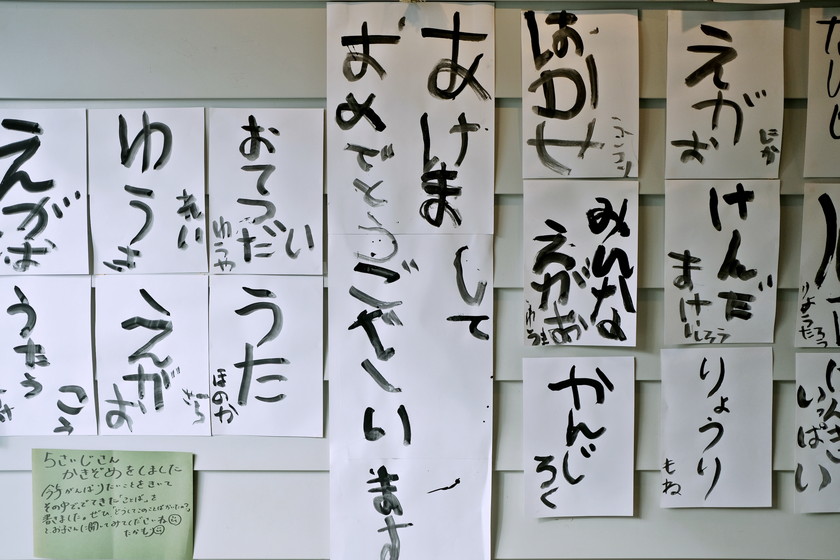 あけまして
おめでとうございます
はかせ
えがお
にか
みんな
えがお
ゆうき
けんだま
けいしろう
かんじ
ろく
りょうり
もね
おてつだい
ゆうや
ゆうき
れい
えがお
うた
ほのか
えがお
さら
うたう
こう
いっぱい
5さいじさん
かきぞめをしました
今年がんばりたいことをきいて
その中ででてきた"ことば"を
書きました。ぜひ"どうしてこのことばかいたの?"
とお子さんに聞いてみてくださいね